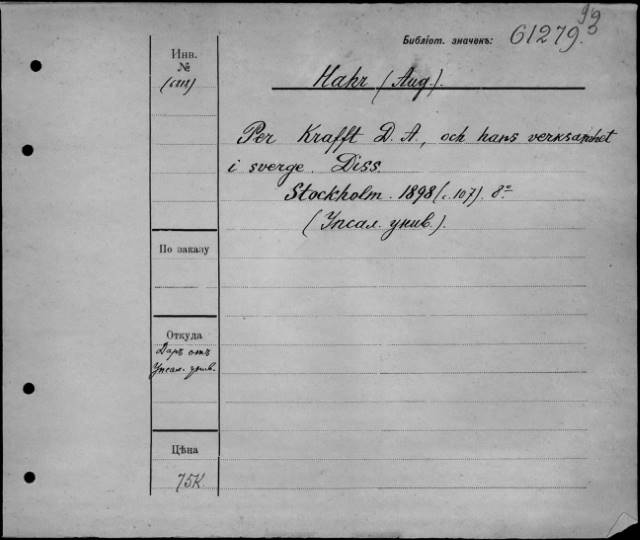 Библіот. значекъ: 61279
Инв.
№
Hahr (Aug.).
Per Krafft D. A., och hans verksamhet
i sverge. Diss.
Stockholm. 1898 (с. 107). 8º
(Упсал. унив.).
По заказу
Откуда
Даръ отъ
Упсал. унив.
Цѣна
75к